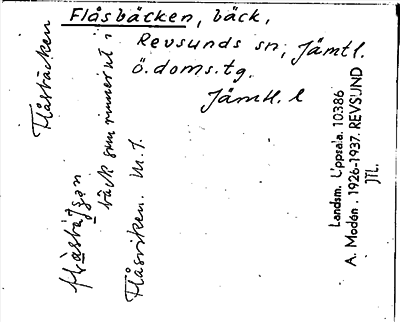 Flåsbäcken, bäck,
Revsunds sn, Jämtl.
ö.doms.tg.
Jämtl. l
Flåsbäcken
bäck som runnit i
Flåsviken. M.1.
Landsm. Uppsala. 10386
A. Modén. 1926-1937. REVSUND
JTL.